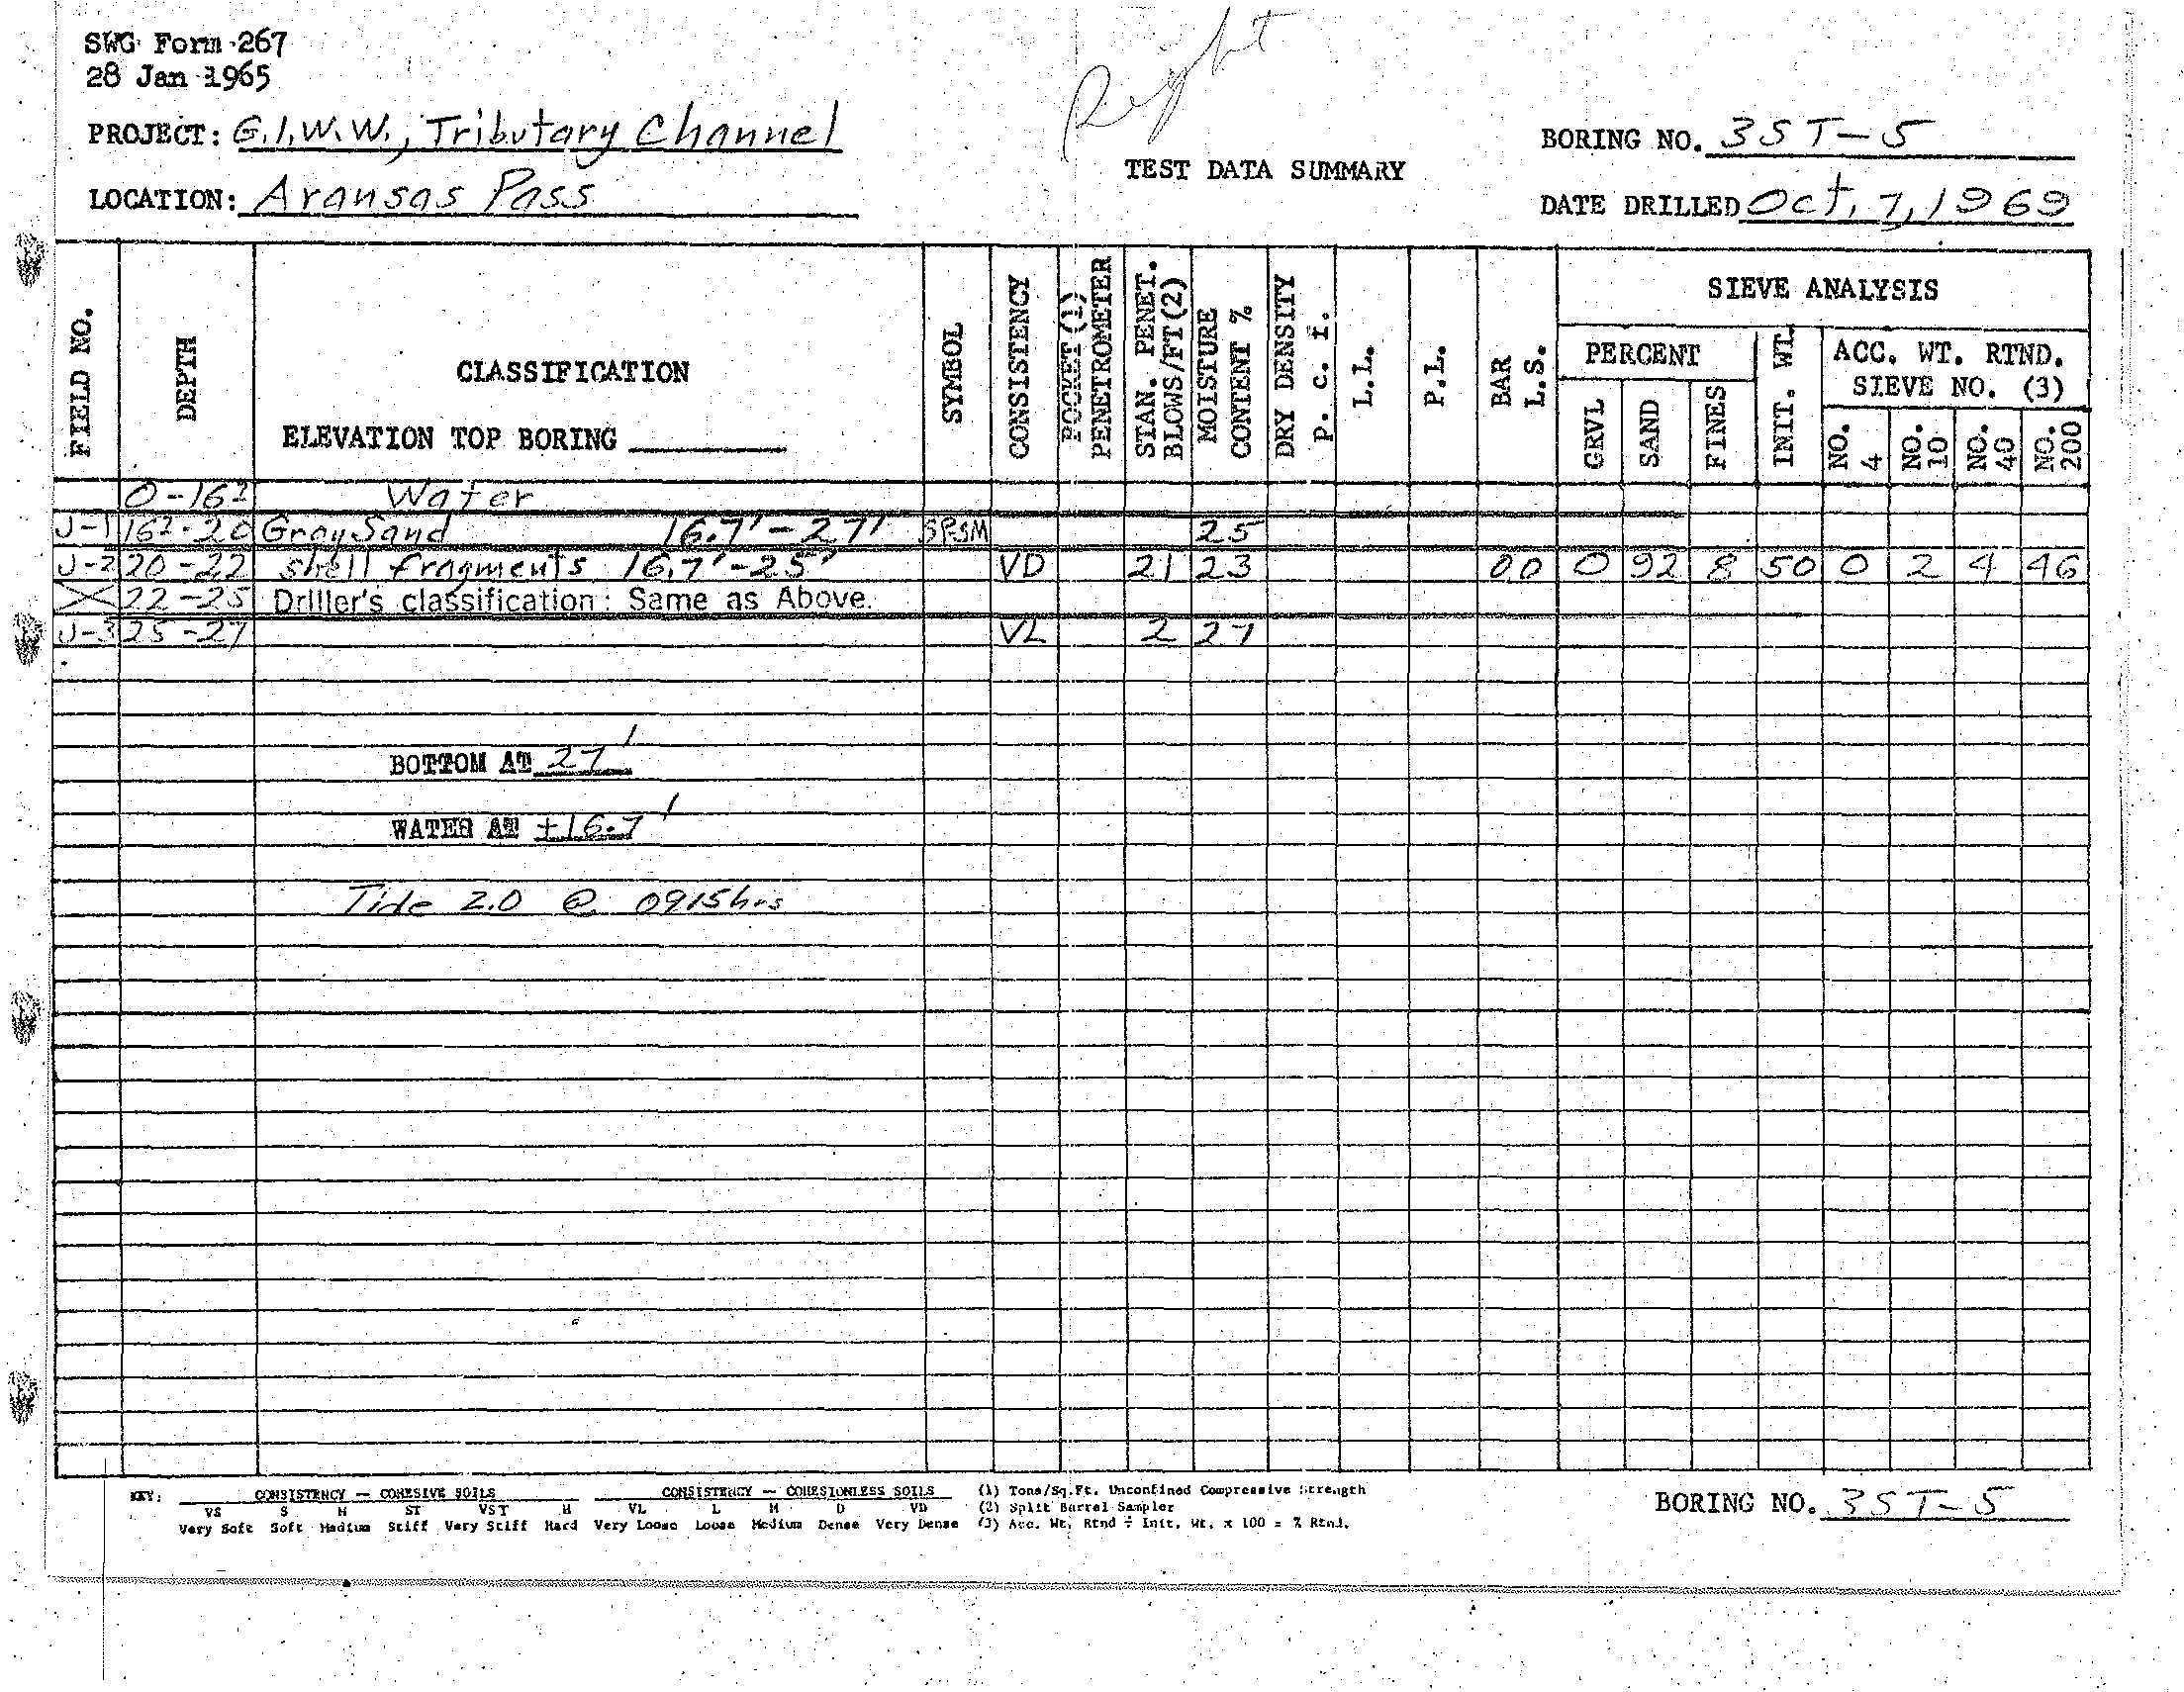 SWG Form 267
28 Jan 1965
Right
PROJECT: G.I.W.W., Tributary Channel
BORING NO. 3ST-5
TEST DATA SUMMARY
LOCATION: Aransas Pass
DATE DRILLED Oct, 7, 1969
FIELD NO.
DEPTH
CLASSIFICATION
ELEVATION TOP BORING
SYMBOL
CONSISTENCY
POCKET (1)
PENETROMETER
STAN. PENET.
BLOWS/FT (2)
MOISTURE
CONTENT %
DRY DENSITY
p. c. f.
L.L.
P.L.
BAR
L.S.
SIEVE ANALYSIS
PERCENT
GRVL
SAND
FINES
INIT. WT.
ACC. WT. RTND.
SIEVE NO. (3)
NO. 4
NO. 10
NO. 40
NO. 200
0-16⁷ Water
J-1 16⁷-20 Gray Sand 16.7'-27' SP-SM 25
J-2 20-22 shell fragments 16.7'-25' VD 21 23 00 0 92 8 50 0 2 4 46
22-25 Driller's classification: Same as Above.
J-3 25-27 VL 2 27
BOTTOM AT 27'
WATER AT ±16.7'
Tide 2.0 @ 0915hrs
KEY: CONSISTENCY — COHESIVE SOILS CONSISTENCY — COHESIONLESS SOILS (1) Tons/Sq.Ft. Unconfined Compressive Strength
VS S M ST VST H VL L M D VD (2) Split Barrel Sampler
Very Soft Soft Medium Stiff Very Stiff Hard Very Loose Loose Medium Dense Very Dense (3) Acc. Wt. Rtnd ÷ Init. Wt. x 100 = % Rtnd.
BORING NO. 3ST-5